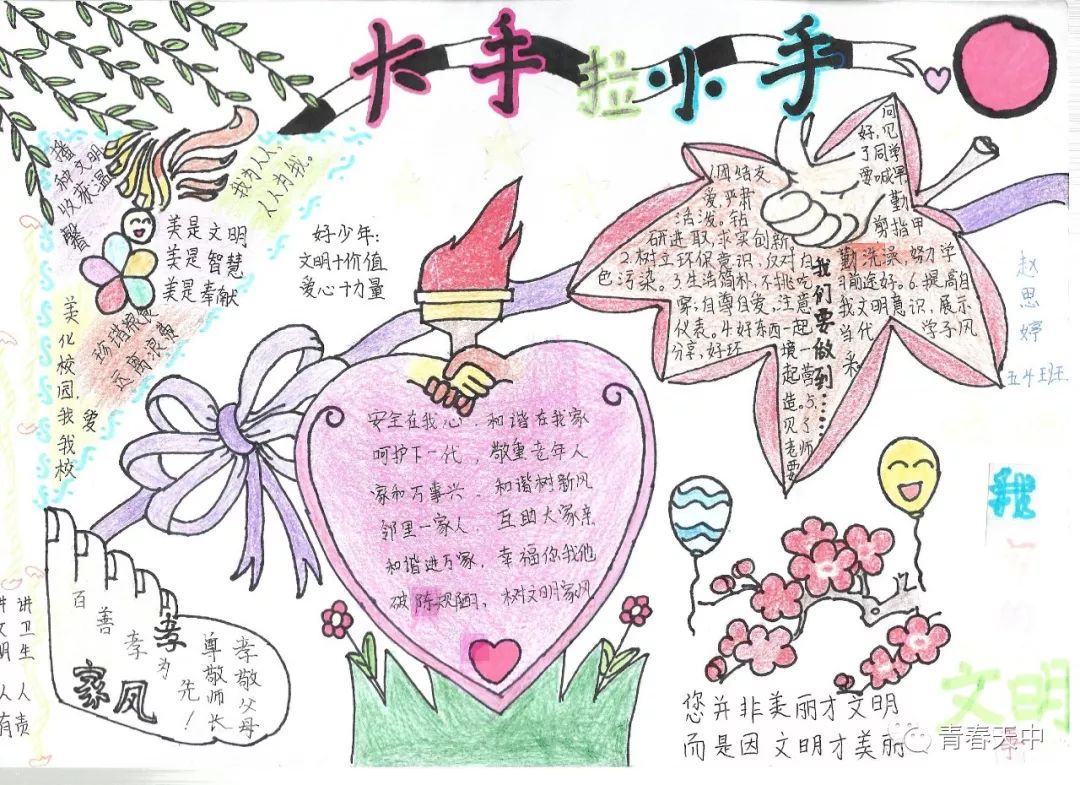 大手拉小手
播
种文明
收获温
馨
我为人人,
人人为我。
美是文明
美是智慧
美是奉献
珍惜粮食
远离浪费
美化校园,我爱我校
好少年:
文明十价值
爱心十力量
安全在我心,和谐在我家
呵护下一代,敬重老年人
家和万事兴,和谐树新风
邻里一家人,互助大家亲
和谐进万家,幸福你我他
破陈规陋,树文明家风
我们要做到……
1.团结友
爱,严肃
活泼。钻
研进取,求实创新
2.树立环保意识,反对白
色污染。3.生活简朴,不挑吃
穿,自尊自爱,注意
仪表。4.好东西一起
分享,好环
境一
起营
造。5.
见了
老师
要
问
好,见
了同学
要喊早
勤
剪指甲
勤洗澡,努力学
习前途好。6.提高自
我文明意识,展示
当代学子风
采
赵思婷
五4班
讲卫生
人人有责
百善孝为先!
孝
家风
尊敬师长
孝敬父母
您并非美丽才文明
而是因文明才美丽
我
的
文明
青春天中